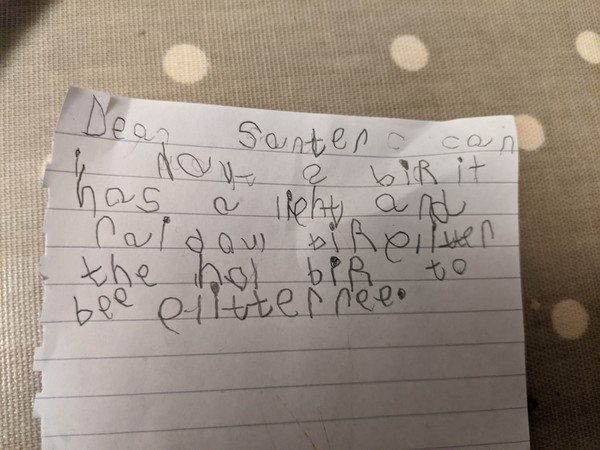 Dear Santer can
i hav a biR it
has a light and
rai daw biR glitter
the hol biR to
bee glitter ree.